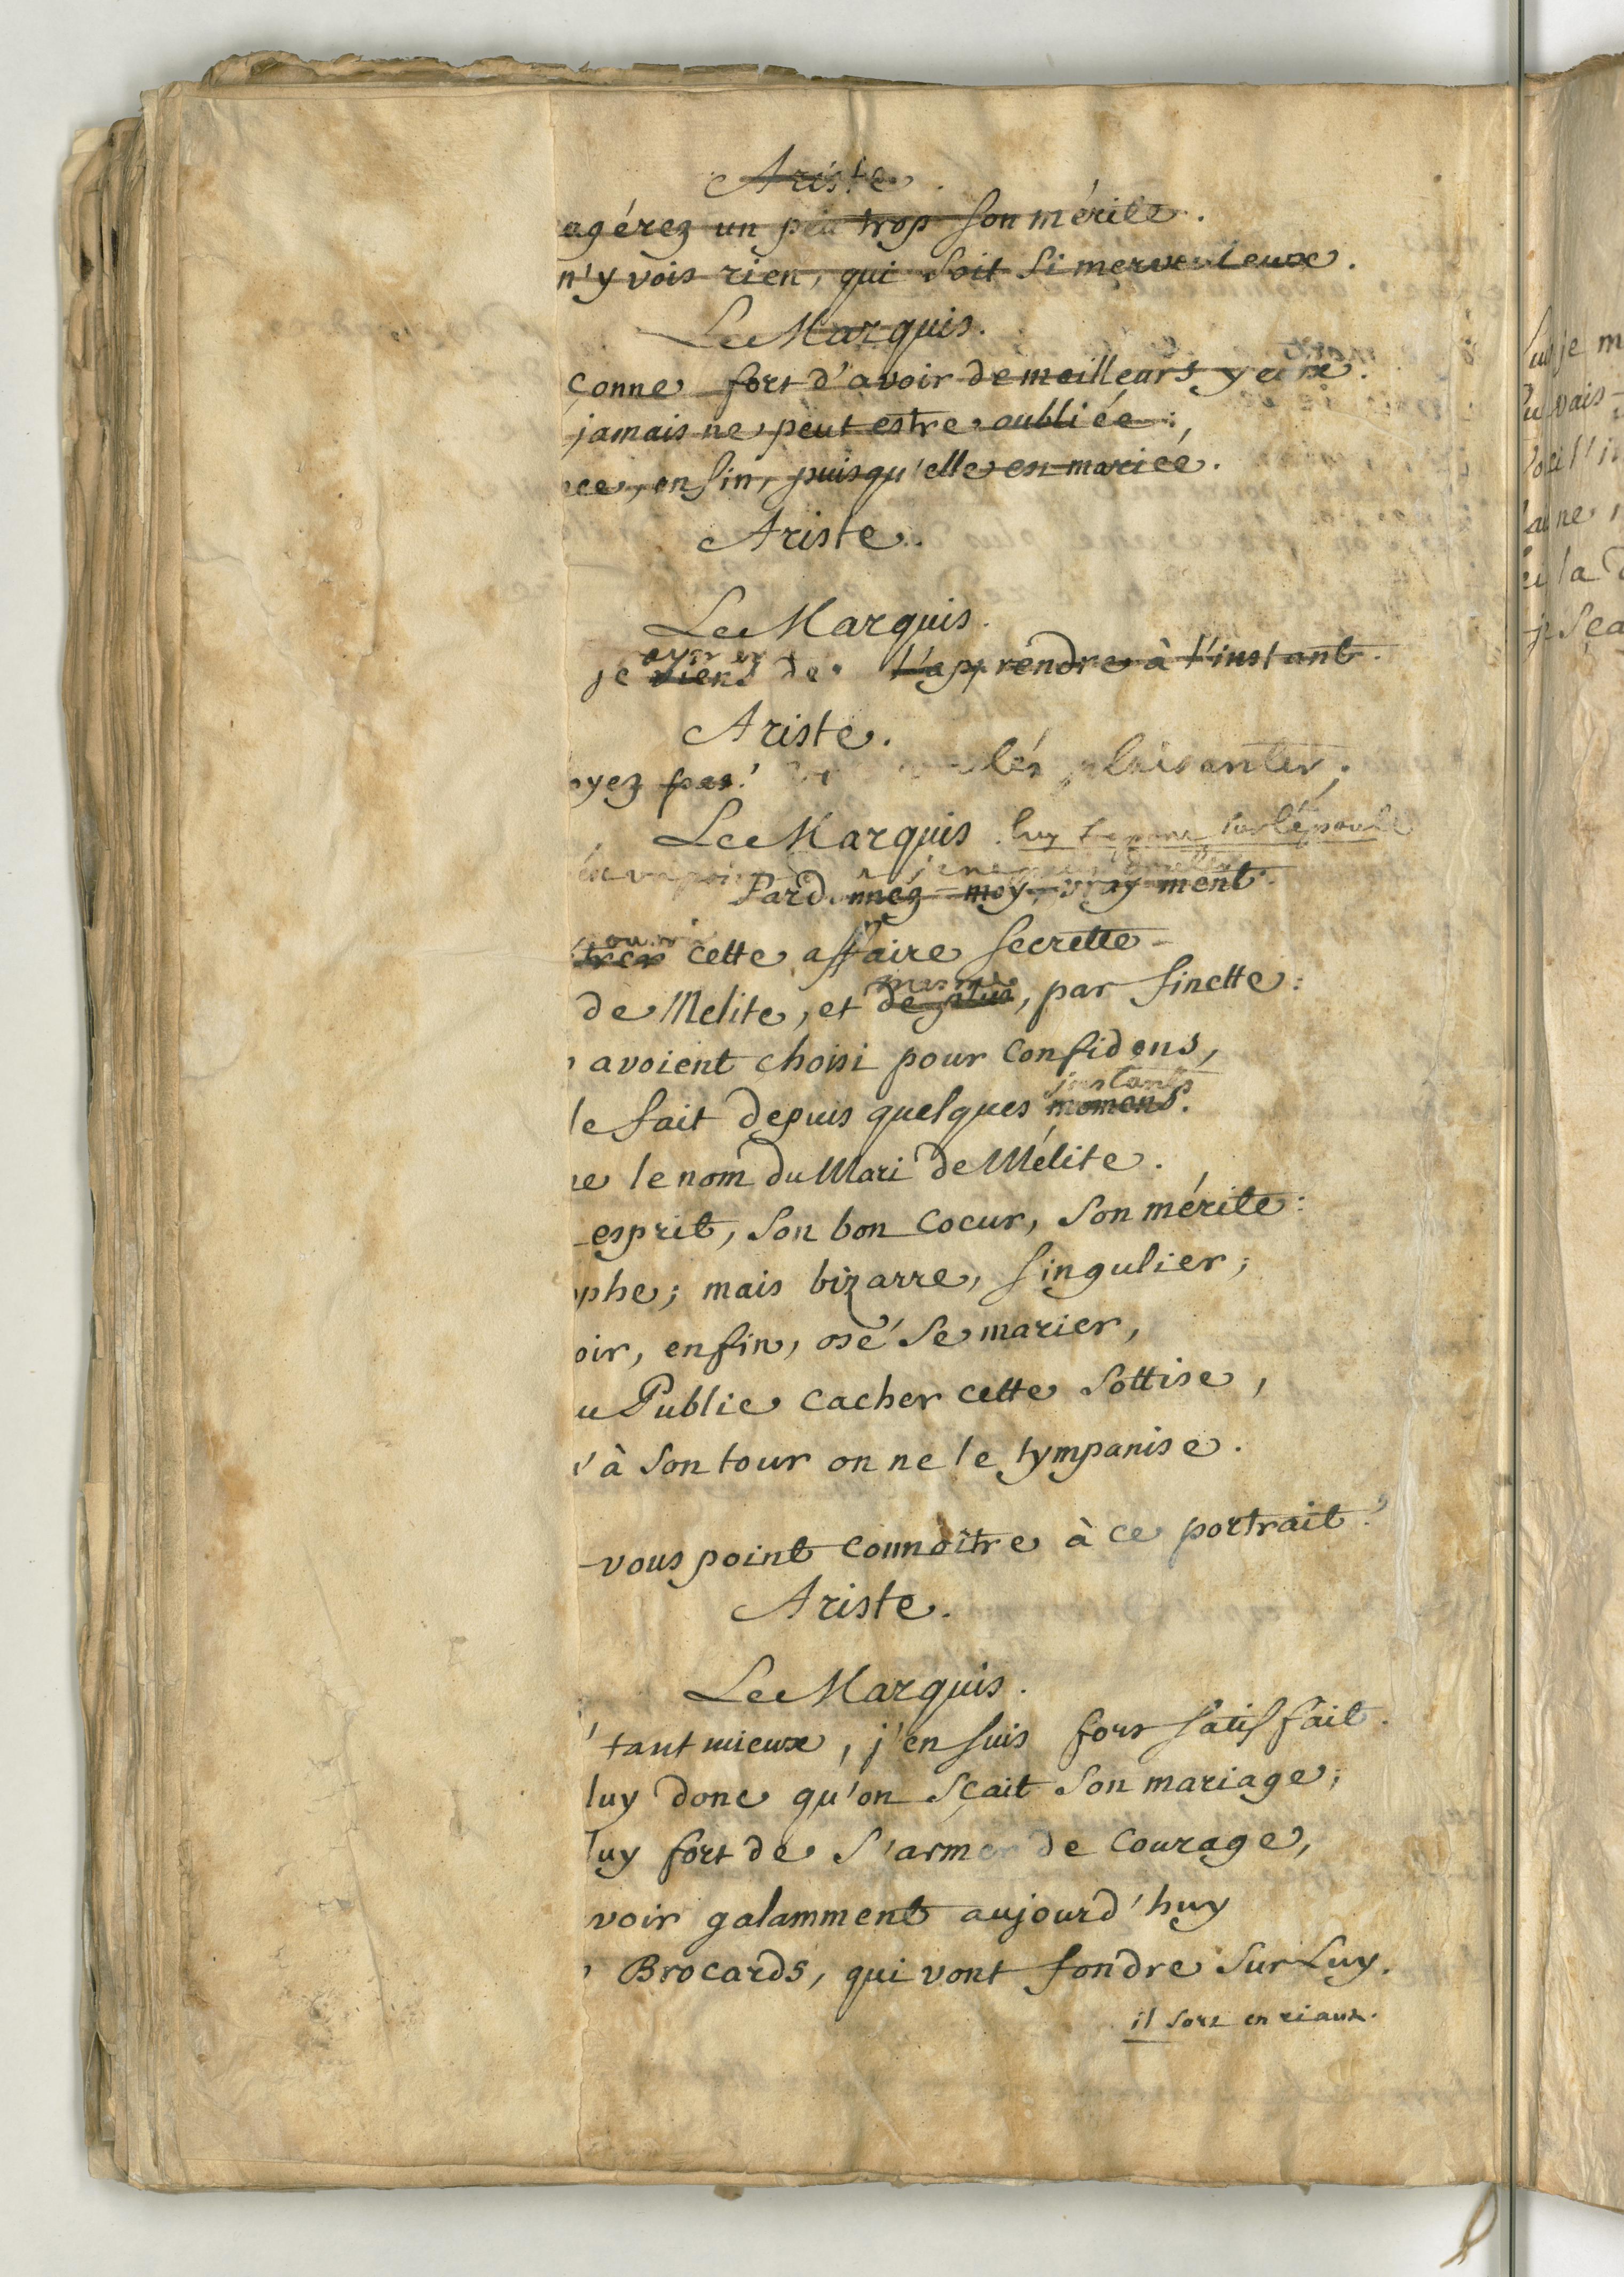 Ariste.
agérez un peu trop son mérite.
n'y vois rien, qui soit si merveuleux.
Le Marquis.
çonne fort d'avoir de meilleurs yeux.
jamais ne peut estre oubliée;
ce, enfin, puisqu'elle est mariée.
Ariste.
Le Marquis.
je viens de l'aprendre à l'instant.
Ariste.
oyez pas! plaisanter;
Le Marquis luy sur l'épaule
Pardonnez-moy, vrayment.
cette affaire secrette
de Melite, et de plus, par finette:
avoient choisi pour confidens,
instants
le fait depuis quelques momens.
le nom du Mari de Mélite.
esprit, son bon coeur, son mérite:
phe; mais bizarre, singulier;
oir, enfin, osé se marier,
u Public cacher cette sottise,
'à son tour on ne le tympanise.
-vous point connoître à ce portrait?
Ariste.
Le Marquis.
! tant mieux, j'en suis fort satisfait.
luy donc qu'on sçait son mariage;
luy fort de s'armer de courage,
voir galamment aujourd'huy
Brocards, qui vont fondre sur Luy.
il sort en riant.